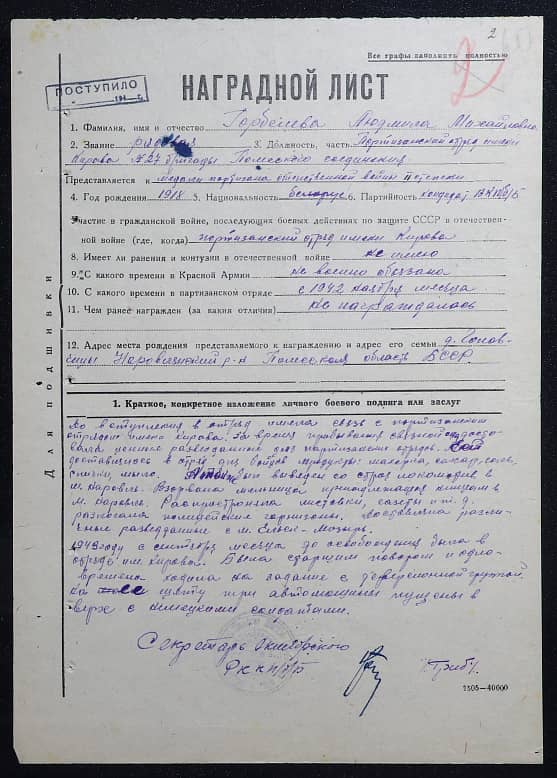 2
Все графы заполнить полностью
ПОСТУПИЛО
НАГРАДНОЙ ЛИСТ
1. Фамилия, имя и отчество Людмила Михайловна
2. Звание рядовая 3. Должность, часть Партизанский отряд имени
Кирова № 27 бригады Полесского соединения
Представляется к медали партизана отечественной войны II степени
4. Год рождения 1918 5. Национальность белорус 6. Партийность кандидат ВКП/б/Б
Участие в гражданской войне, последующих боевых действиях по защите СССР в отечествен-
ной войне (где, когда) партизанский отряд имени Кирова
8. Имеет ли ранения и контузии в отечественной войне не имею
9. С какого времени в Красной Армии не военно обязана
10. С какого времени в партизанском отряде с 1942 ноября месяца
11. Чем ранее награжден (за какия отличия) не награждалась
12. Адрес места рождения представляемого к награждению и адрес его семьи д.
Наровлянский р-н Полесская область БССР.
Для подшивки
1. Краткое, конкретное изложение личного боевого подвига или заслуг
До вступления в отряд имела связь с партизанским
отрядом имени Кирова. За время пребывания связной
ценные разведданные для партизанских отрядов.
доставлялись в отряд для бойцов продукты: махорка, соль,
спички, мыло. был выведен со строя локомобиль в
м. Наровля. Взорвана мельница принадлежащая немцам в
м. Наровля. Распространяла листовки, газеты и т.д.
разлагала полицейские гарнизоны. Доставляла различ-
ные разведданные с м. Ельск-Мозырь.
1943 году с сентября месяца до освобождения была в
отряде им. Кирова. Была старшим поваром и одно-
временно ходила на задание с диверсионной группой.
На шляху три автомашины пущены в
верх с немецкими солдатами.
Секретарь Октябрьского
РК КП/б/Б
1505—40000